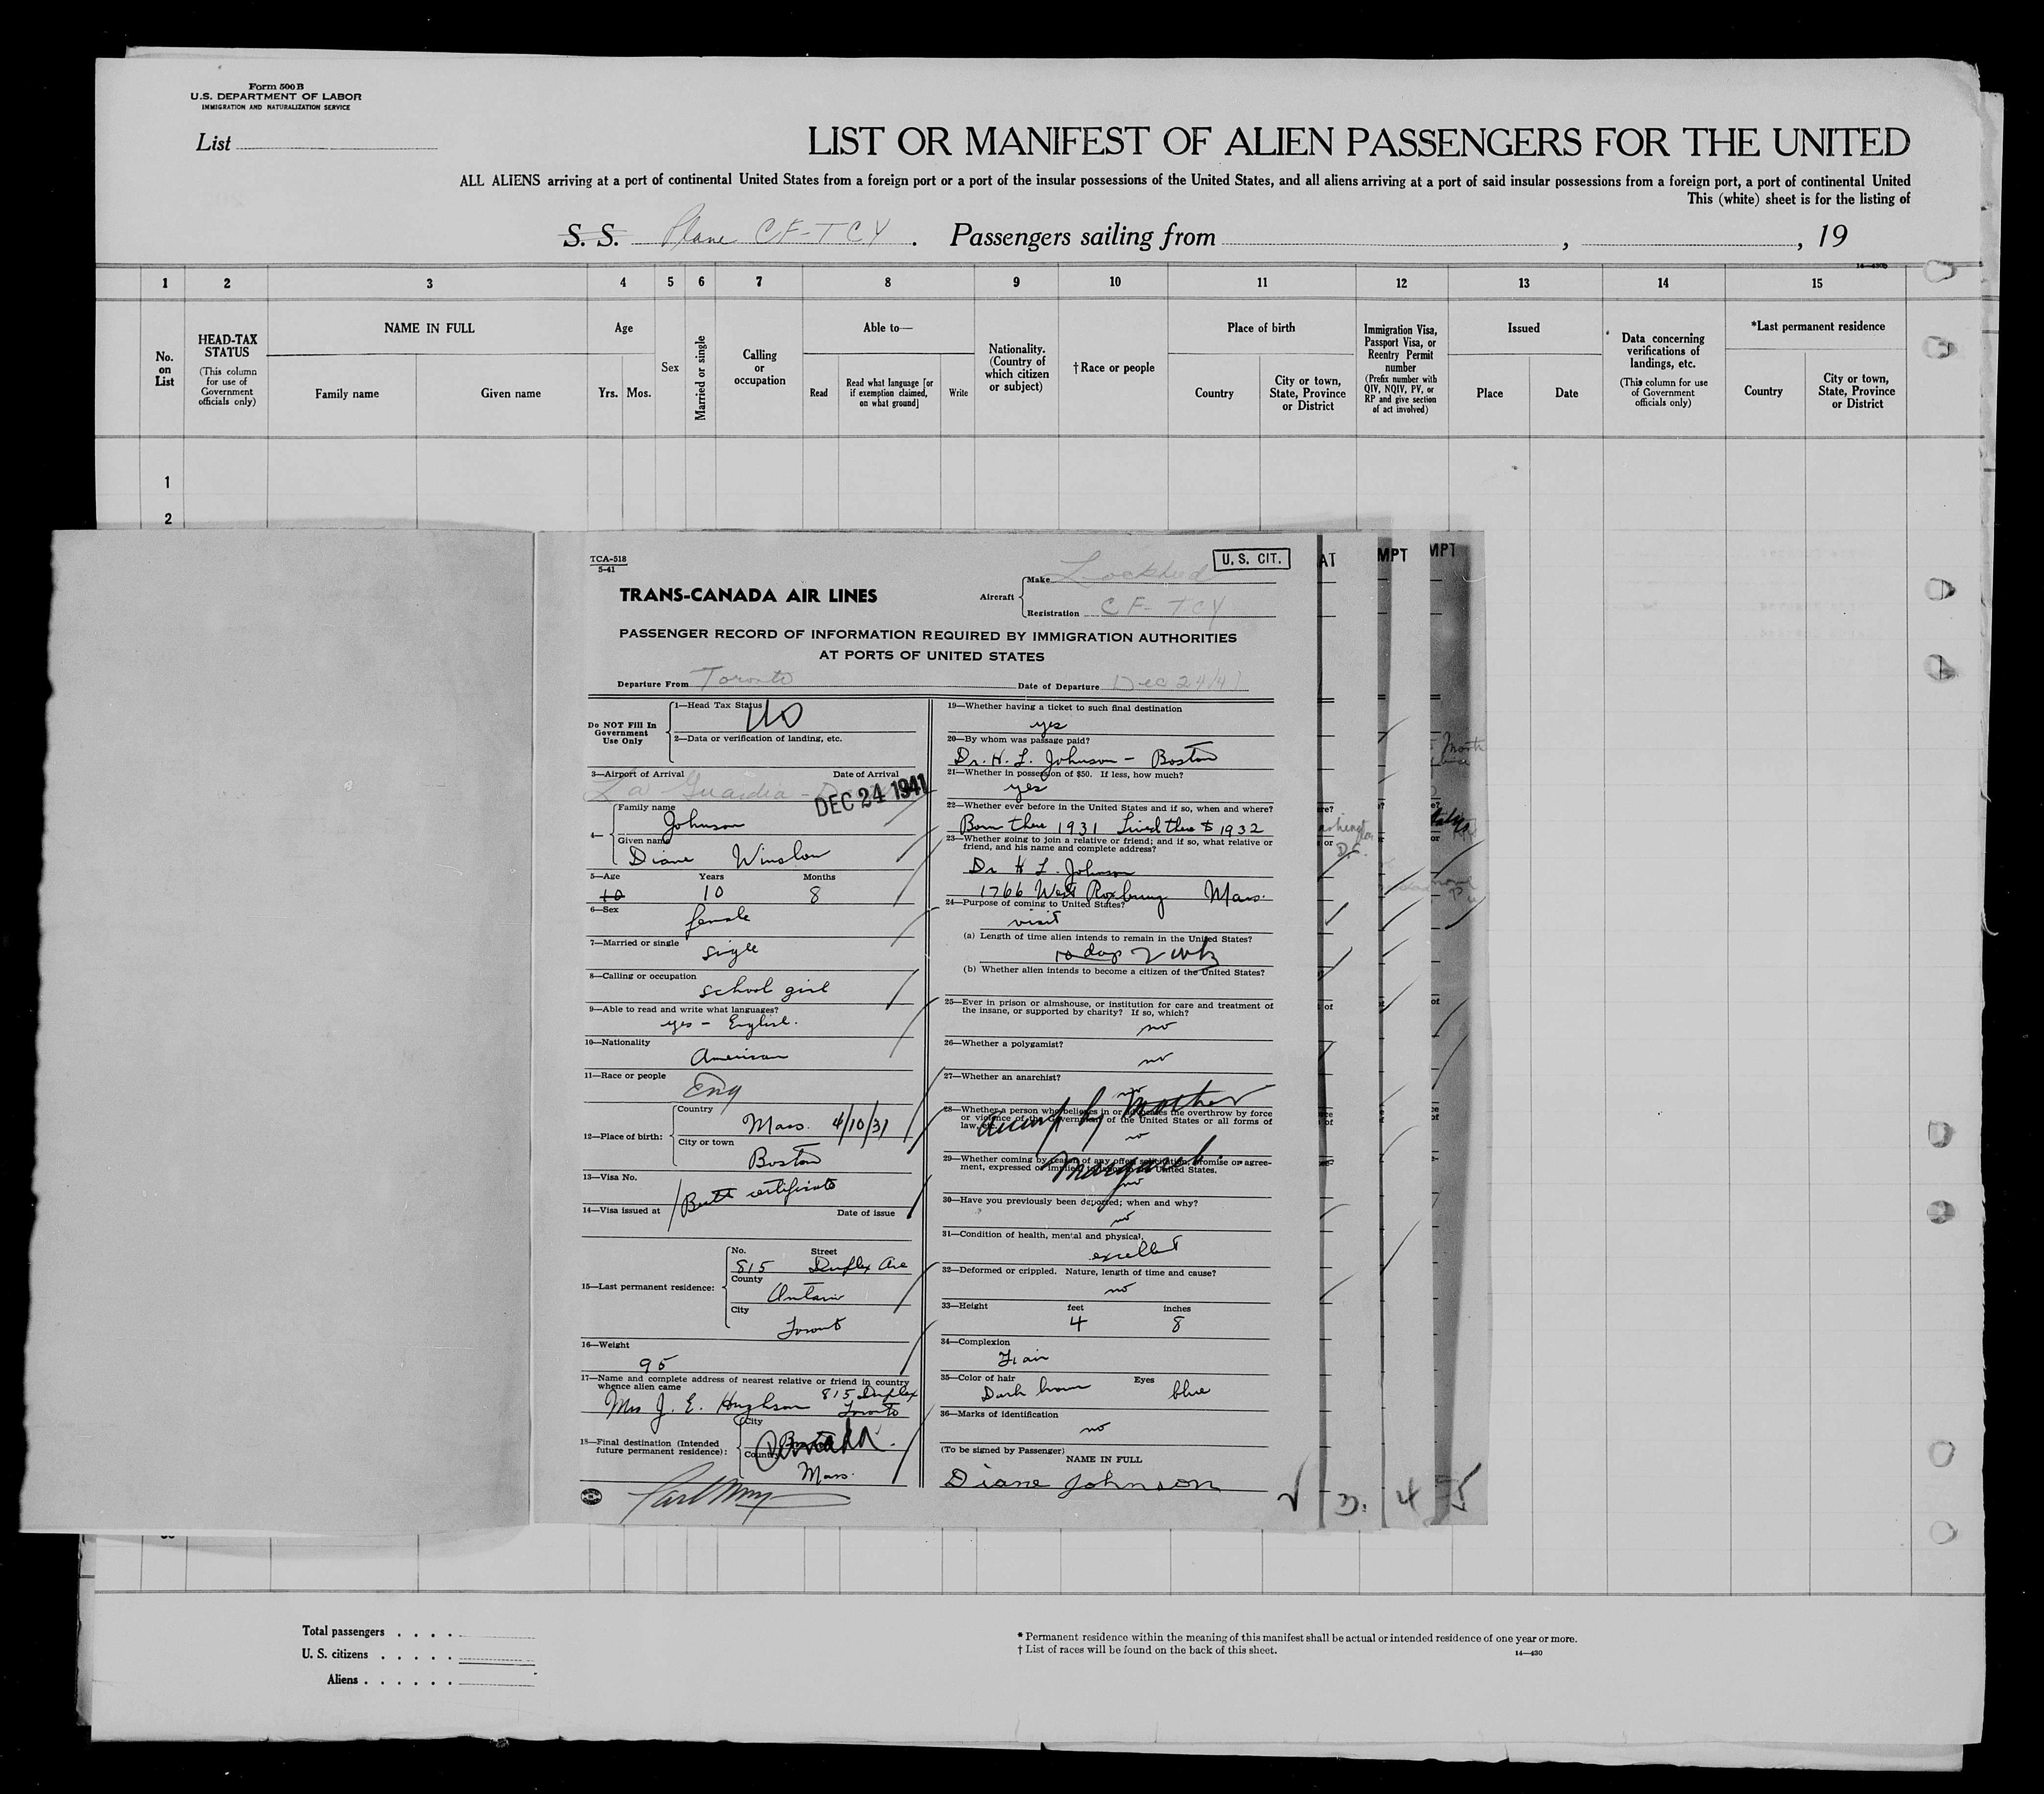 Form 500 B
U.S. DEPARTMENT OF LABOR
IMMIGRATION AND NATURALIZATION SERVICE
List
LIST OR MANIFEST OF ALIEN PASSENGERS FOR THE UNITED
ALL ALIENS arriving at a port of continental United States from a foreign port or a port of the insular possessions of the United States, and all aliens arriving at a port of said insular possessions from a foreign port, a port of continental United
This (white) sheet is for the listing of
S. S. Plane CF-TCY . Passengers sailing from , , 19
1 2 3 4 5 6 7 8 9 10 11 12 13 14 15
No. on List
HEAD-TAX STATUS
(This column for use of Government officials only)
NAME IN FULL
Family name Given name
Age
Yrs. Mos.
Sex
Married or single
Calling or occupation
Able to—
Read
Read what language [or if exemption claimed, on what ground]
Write
Nationality. (Country of which citizen or subject)
†Race or people
Place of birth
Country
City or town, State, Province or District
Immigration Visa, Passport Visa, or Reentry Permit number
(Prefix number with QIV, NQIV, PV, or RP and give section of act involved)
Issued
Place Date
Data concerning verifications of landings, etc.
(This column for use of Government officials only)
*Last permanent residence
Country
City or town, State, Province or District
1
2
TCA-518
5-41
U. S. CIT.
AT
MPT
MPT
TRANS-CANADA AIR LINES
Aircraft
Make Lockheed
Registration CF-TCY
PASSENGER RECORD OF INFORMATION REQUIRED BY IMMIGRATION AUTHORITIES
AT PORTS OF UNITED STATES
Departure From Toronto Date of Departure Dec 24/41
Do NOT Fill In Government Use Only
1—Head Tax Status
2—Data or verification of landing, etc.
3—Airport of Arrival Date of Arrival
La Guardia
DEC 24 1941
4—
Family name
Johnson
Given name
Diane Winslow
5—Age Years Months
10 10 8
6—Sex
female
7—Married or single
single
8—Calling or occupation
school girl
9—Able to read and write what languages?
yes - English.
10—Nationality
American
11—Race or people
Eng
12—Place of birth:
Country
Mass. 4/10/31
City or town
Boston
13—Visa No.
Birth certificate
14—Visa issued at Date of issue
15—Last permanent residence:
No. Street
815 Duplex Ave
County
Ontario
City
Toronto
16—Weight
95
17—Name and complete address of nearest relative or friend in country
whence alien came
815 Duplex
Mrs J. E. Hughson Toronto
18—Final destination (Intended
future permanent residence):
City
Boston
Country
Canada
Mass.
19—Whether having a ticket to such final destination
yes
20—By whom was passage paid?
Dr. H. L. Johnson - Boston
21—Whether in possession of $50. If less, how much?
yes
22—Whether ever before in the United States and if so, when and where?
Born there 1931 Lived there to 1932
23—Whether going to join a relative or friend; and if so, what relative or
friend, and his name and complete address?
Dr H L. Johnson
1766 West Roxbury Mass.
24—Purpose of coming to United States?
visit
(a) Length of time alien intends to remain in the United States?
10 days 2 wks
(b) Whether alien intends to become a citizen of the United States?
25—Ever in prison or almshouse, or institution for care and treatment of
the insane, or supported by charity? If so, which?
no
26—Whether a polygamist?
no
27—Whether an anarchist?
no
28—Whether a person who believes in or advocates the overthrow by force
or violence of the Government of the United States or all forms of
law, etc.
accomp by Mother
no
29—Whether coming by reason of any offer, solicitation, promise or agree-
ment, expressed or implied, to labor in United States.
no
30—Have you previously been deported; when and why?
no
31—Condition of health, mental and physical.
excellent
32—Deformed or crippled. Nature, length of time and cause?
no
33—Height feet inches
4 8
34—Complexion
Fair
35—Color of hair Eyes
Dark brown blue
36—Marks of identification
no
(To be signed by Passenger)
NAME IN FULL
Diane Johnson
3. 4 5
Total passengers
U. S. citizens
Aliens
* Permanent residence within the meaning of this manifest shall be actual or intended residence of one year or more.
† List of races will be found on the back of this sheet.
14—430